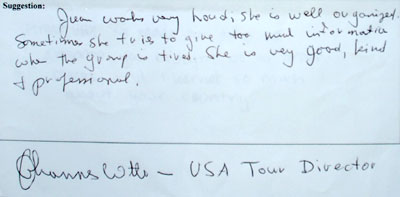 Suggestion:
Juan works very hard; she is well organized.
Sometimes she tries to give too much information
when the group is tired. She is very good, kind
& professional.
— USA Tour Director